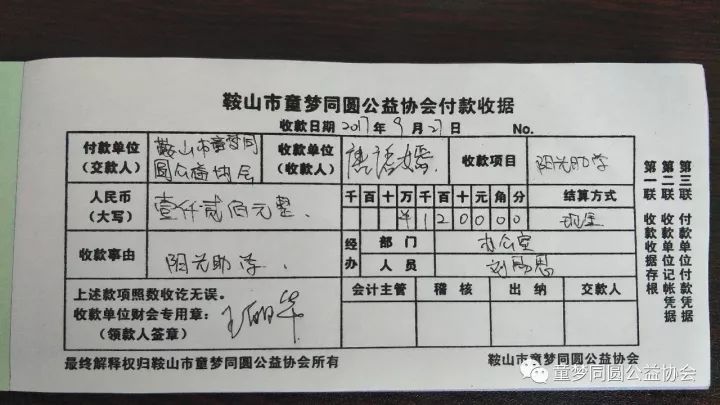 鞍山市童梦同圆公益协会付款收据
收款日期 2017年9月27日 No.
付款单位 (交款人) 鞍山市童梦同圆公益协会 收款单位 (收款人) 收款项目 阳光助学
人民币 (大写) 壹仟贰佰元整. 千百十万千百十元角分 结算方式
¥120000 现金
收款事由 阳光助学. 经办 部门 办公室
人员
上述款项照数收讫无误。 会计主管 稽核 出纳 交款人
收款单位财会专用章:
(领款人签章)
最终解释权归鞍山市童梦同圆公益协会所有 鞍山市童梦同圆公益协会
第一联 收款收据存根
第二联 收款单位记帐凭据
第三联 付款单位付款凭据
童梦同圆公益协会